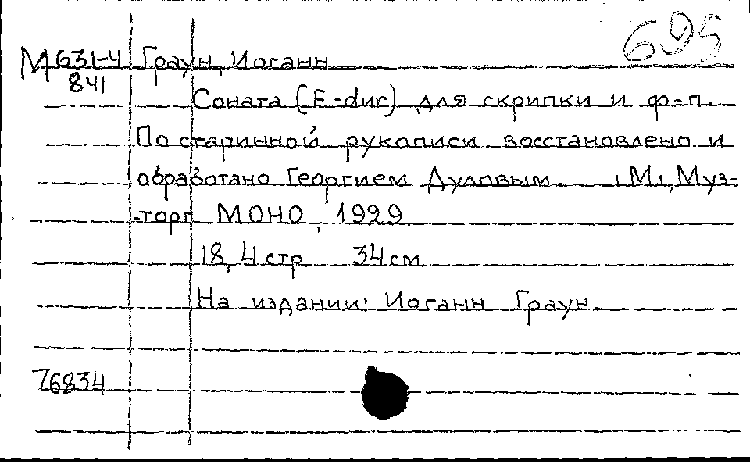 695
М 631-4 Граун, Иоганн
841
Соната (E-dur) для скрипки и ф-п.
По старинной рукописи восстановлено и
обработано Георгием Дуловым [М], Муз-
торг МОНО, 1929
18, 4 стр 34 см
На издании: Иоганн Граун.
76834